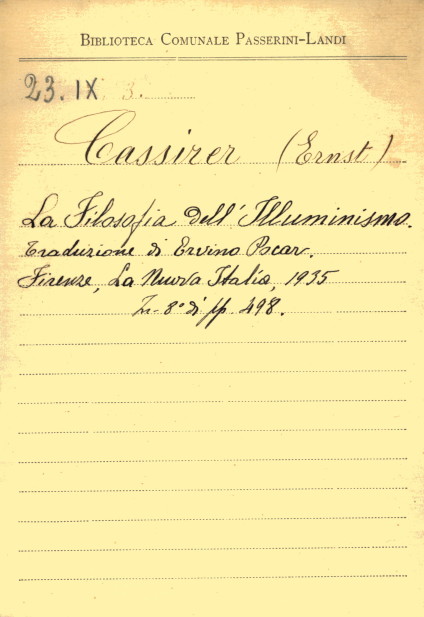 BIBLIOTECA COMUNALE PASSERINI-LANDI
23. IX 3.
Cassirer (Ernst)
La Filosofia dell'Illuminismo.
Traduzione di Ervino Pocar.
Firenze, La Nuova Italia, 1935
In-8° di pp. 498.